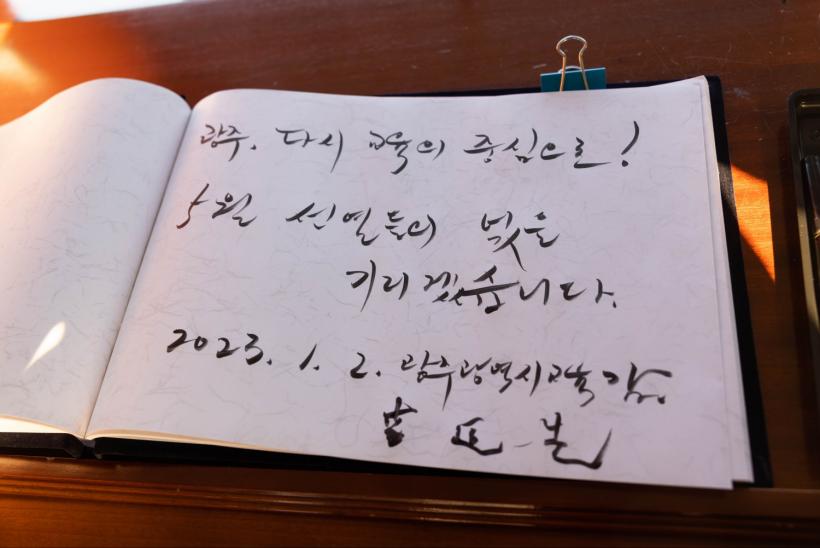 광주, 다시 교육의 중심으로!
5월 선열들의 넋을
기리겠습니다.
2023. 1. 2. 광주광역시교육감
이정선